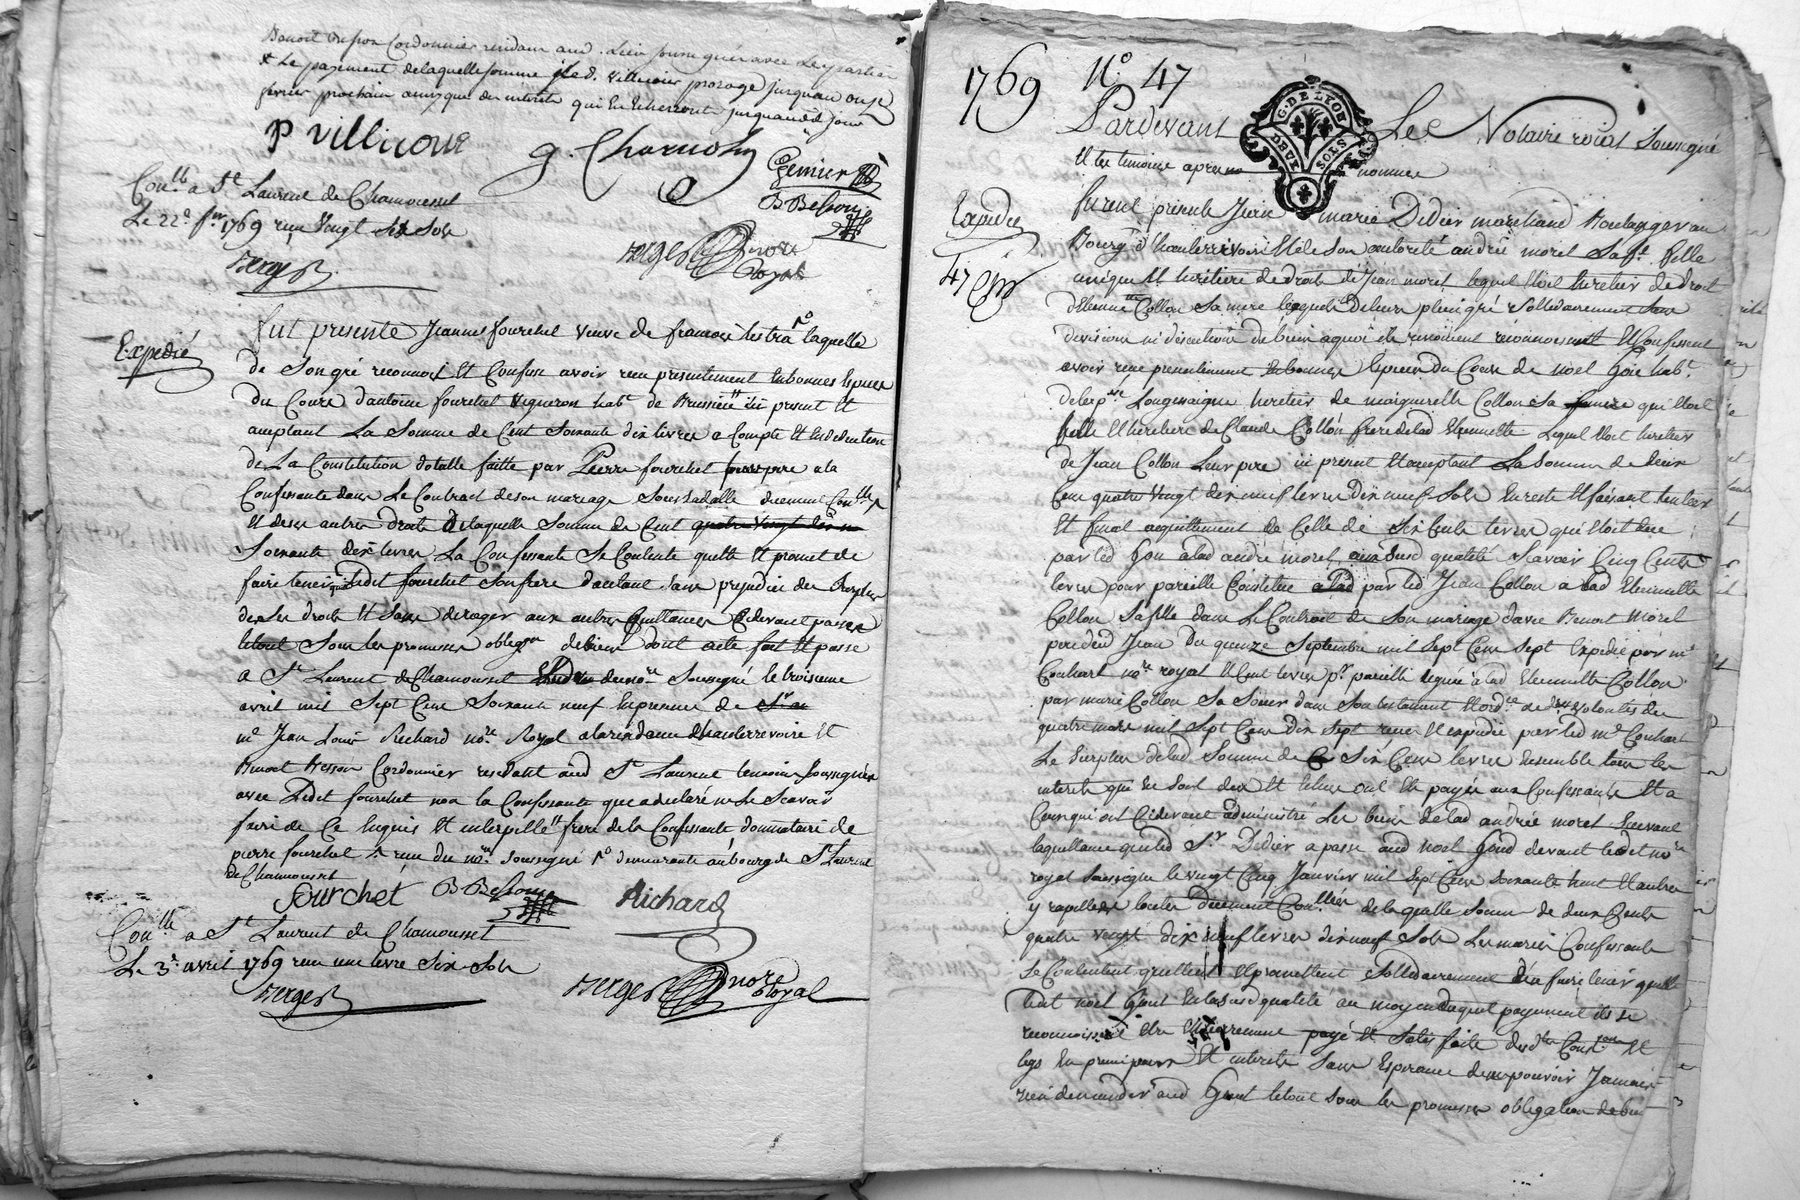 Benoit Besson Cordonnier residant aud. Lieu soussigné avec les parties
& Le payement de laquelle somme led. Villicour proroge jusquau onze
fevrier prochain avecque des interets qui en echerront jusquaud. jour
P villicour g. Charuoin Grenier
B Besson
Con.lle a St Laurent de Chamousset
Le 22e fer 1769 reçu vingt six Sols
Berger
Berger nore Royal
Expedié
fut presente Jeanne fourchet veuve de francois Lestra 1o laquelle
de Son gré reconnoit Et Confesse avoir reçu presentement En bonnes Especes
du Cours d'antoine fourchet vigneron habt de Brussieu ici present Et
acceptant La Somme de Cent Soixante dix livres a Compte Et En deduction
de La Constitution dotalle faitte par Pierre fourchet leur pere a la
Confessante dans Le Contract de son mariage Sous sa datte duement Con.llé
Et de ses autres droits De laquelle Somme de Cent quatre vingt dix
Soixante dix livres La Confessante Se Contente quitte Et promet de
faire tenir quitte Ledit fourchet Son frere d'autant Sans prejudice du Surplus
de ses droits Et Sans deroger aux autres quittances Cy devant passées
Letout Sous les promesses obligon de biens dont acte fait Et passé
a St Laurent de Chamousset Etude du nore Soussigné le troisieme
avril mil Sept Cent Soixante neuf En presence de Sr
me Jean Louis Richard nore Royal a la residance d'haulterrivoire Et
Benoit Besson Cordonnier residant aud St Laurent temoins Soussignés
avec Ledit fourchet non la Confessante qui a declaré ne Le Scavoir
faire de Ce Enquis Et interpellée tt frere de la Confessante donnataire de
pierre fourchet & reçu du nore soussigné 1o demeurante au bourg de St Laurent
de Chamousset
fourchet B Besson Richard
Con.lle a St Laurent de Chamousset
Le 3e avril 1769 reçu une livre Six Sols
Berger
Berger nore Royal
1769 No. 47
G. DE LYON
DEUX SOLS
Pardevant Le Notaire roial Soussigné
Et les temoins apres nommés
Expedié
47
furent presents Jean marie Didier marchand Boulanger au
Bourg d'haulterrivoire Et de Son autorité andrée morel Sa fe fille
unique Et heritiere de droit de Jean morel lequel Etoit heritier de droit
d'Etiennette Collon Sa mere lesquels de leur plein gré Sollidairement Sans
division ni discution de biens a quoi ils renoncent reconnoissent Et Confessent
avoir reçu presentement En bonnes Especes du Cours de noel Gout habt
de la psse Longessaigne heritier de Collon Sa qui Etoit
fille Et heritiere de Claude Collon frere de lad Etiennette Lequel Etoit heritier
de Jean Collon Leur pere ici present Et acceptant La Somme de deux
Cent quatre vingt dix neuf livres dix neuf Sols En reste Et faisant Entier
Et final acquittement de Celle de Six Cents livres qui Etoit due
par led Gout a lad andrée morel aux Susd qualités Scavoir Cinq Cents
livres pour pareille Constituée a lad par led Jean Collon a lad Etiennette
Collon Sa fille dans Le Contract de Son mariage davec Benoit Morel
pere dud Jean du quinze Septembre mil Sept Cent Sept Expedié par me
Couhart nore royal Et Cent livres pr pareille leguée a lad Etiennette Collon
par marie Collon Sa Soeur dans Son testament Et ordce de der volontés du
quatre mars mil Sept Cent dix Sept reçu Et expedié par led me Couhart
Le Surplus de lad Somme de Six Cent livres Ensemble tous les
interets qui En Sont dus Et Echus ont Eté payés aux Confessants Et a
Ceux qui ont Cidevant administré Les biens de lad andrée morel Suivant
la quittance que led Sr Didier a passé aud noel Gout devant ledit nore
royal Soussigné le vingt Cinq Janvier mil Sept Cent Soixante huit Et autres
y rapellées duement Con.llées de laquelle Somme de deux Cents
quatre vingt dix neuf livres dix neuf Sols Les mariés Confessants
Se Contentent quittent Et promettent Sollidairement d'en faire tenir quitte
Ledit noel Gout En la Susd qualité au moyen duquel payement ils Se
reconnoissent Etre Entierrement payé Et Satisfaits desdtes Constons Et
legs En principaux Et interets Sans Esperance de ne pouvoir Jamais
rien demander aud Gout le tout Sous les promesses obligation de biens